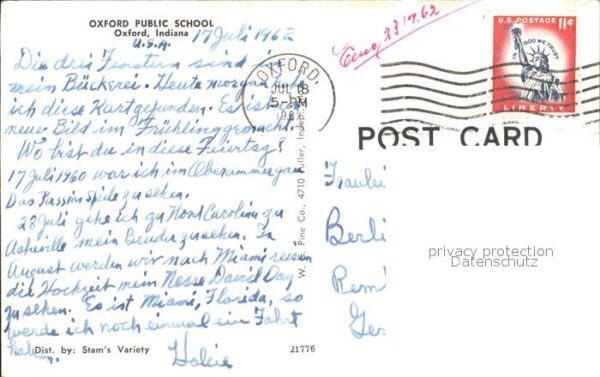 OXFORD PUBLIC SCHOOL
Oxford, Indiana
U.S.A. 17 Juli 1962
Die drei Fenstern sind in
mein Bückerei. Heute morgan habe
ich diese Kart gefunden. Es ist ein
neue Bild im Frühling gemacht.
Wo bist du in diese Feiertag?
17 Juli 1960 war ich im Oberammergau
Das Passion Spiele zu sehen.
28 Juli gehe ich zu Nort Carolina zu
Asheville mein Bruder zu sehen. In
August werden wir nach Miami reisen
die Hochzeit mein Nesse David Day
zu sehen. Es ist Miami, Florida, so
werde ich noch einmal ein Fahrt
haben.
Dist. by: Stam's Variety
21776
Pine Co., 4710 Fuller, Indep.
23 19.62
OXFORD,
JUL 18
5-PM
U.S. POSTAGE 11¢
IN GOD WE TRUST
LIBERTY
POST CARD
Fraulei
Berli
Rem
Ger
privacy protection
Datenschutz